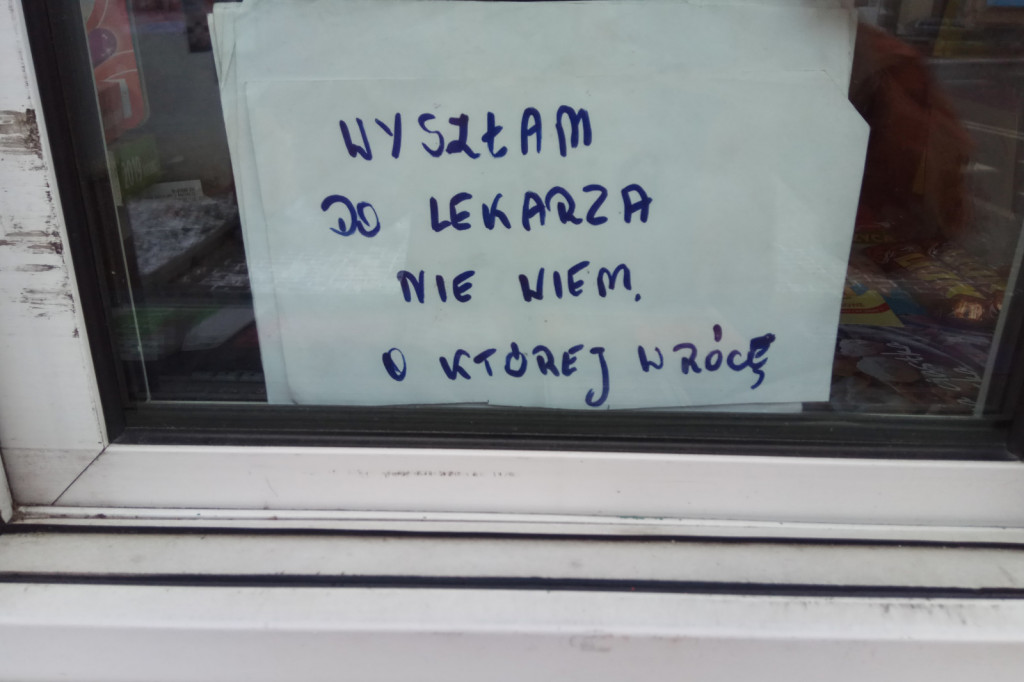 WYSZŁAM
DO LEKARZA
NIE WIEM.
O KTÓREJ WRÓCĘ